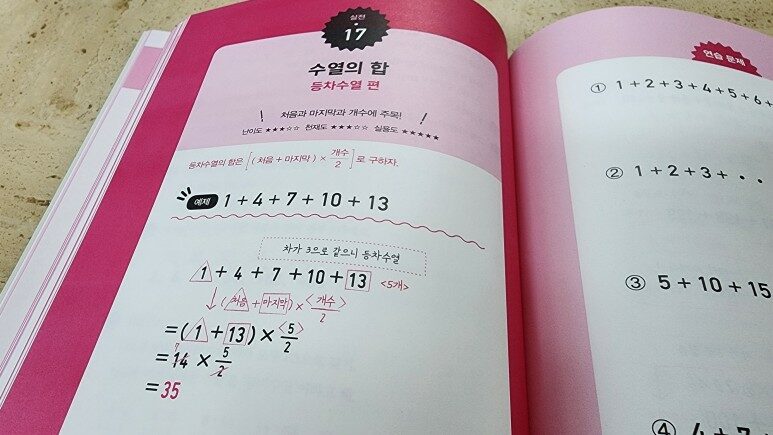 실전
17
수열의 합
등차수열 편
처음과 마지막과 개수에 주목!
난이도 ★★★☆☆ 천재도 ★★★☆☆ 실용도 ★★★★★
등차수열의 합은 [(처음 + 마지막) × 개수/2]로 구하자.
예제 1 + 4 + 7 + 10 + 13
차가 3으로 같으니 등차수열
1 + 4 + 7 + 10 + 13 <5개>
↓(처음 + 마지막) × <개수>/2
= (1 + 13) × <5>/2
= 14 × 5/2
7
= 35
연습 문제
① 1 + 2 + 3 + 4 + 5 + 6 +
② 1 + 2 + 3 + · ·
③ 5 + 10 + 15
④ 4 + 7